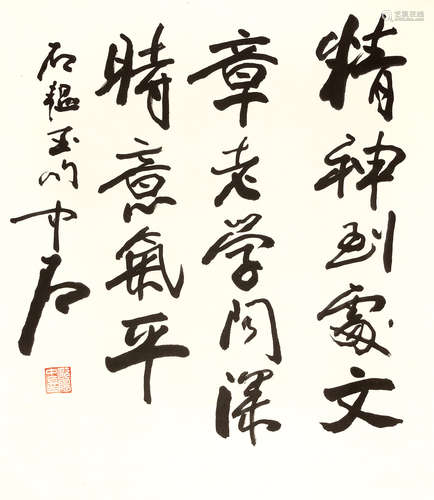 精神到處文
章老学问深
時意氣平
石韞玉句 中石